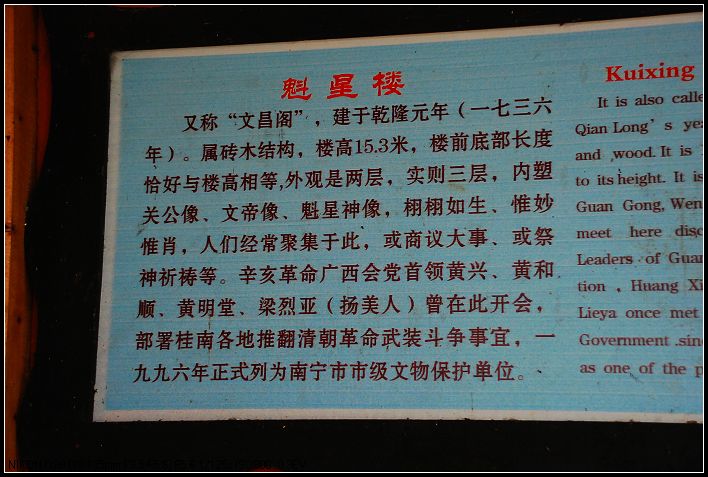 魁星楼
又称“文昌阁”，建于乾隆元年（一七三六
年）。属砖木结构，楼高15.3米，楼前底部长度
恰好与楼高相等,外观是两层，实则三层，内塑
关公像、文帝像、魁星神像，栩栩如生、惟妙
惟肖，人们经常聚集于此，或商议大事、或祭
神祈祷等。辛亥革命广西会党首领黄兴、黄和
顺、黄明堂、梁烈亚（扬美人）曾在此开会，
部署桂南各地推翻清朝革命武装斗争事宜，一
九九六年正式列为南宁市市级文物保护单位。
Kuixing
It is also calle
Qian Long's yea
and wood. It is
to its height. It is
Guan Gong, Wen
meet here disc
Leaders of Guan
tion , Huang Xi
Lieya once met
Government .sin
as one of the p